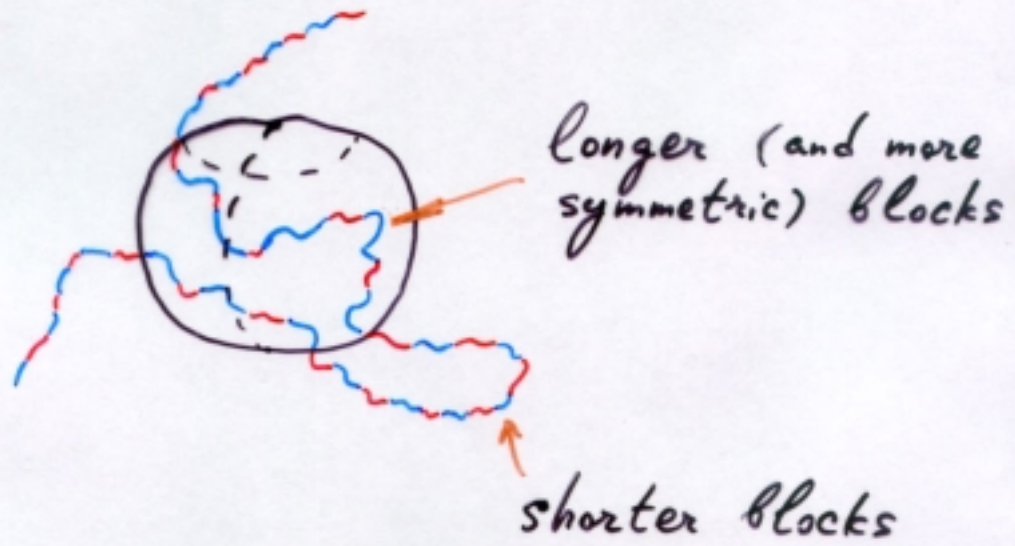 longer (and more
symmetric) blocks
shorter blocks